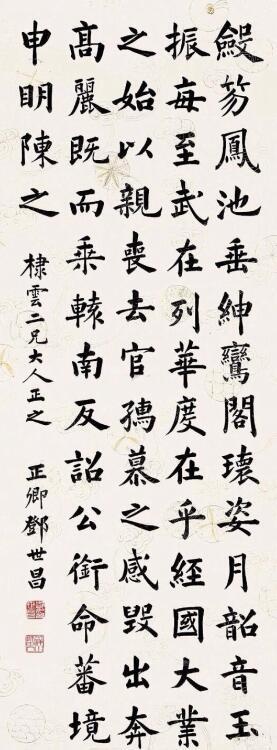 毀笏鳳池垂紳鸞閣瓌姿月韶音玉
振每至武在列華度在乎經國大業
之始以親喪去官孺慕之感毀出奔
高麗既而乘轅南反詔公銜命蕃境
申明陳之
棣雲二兄大人正之
正卿鄧世昌